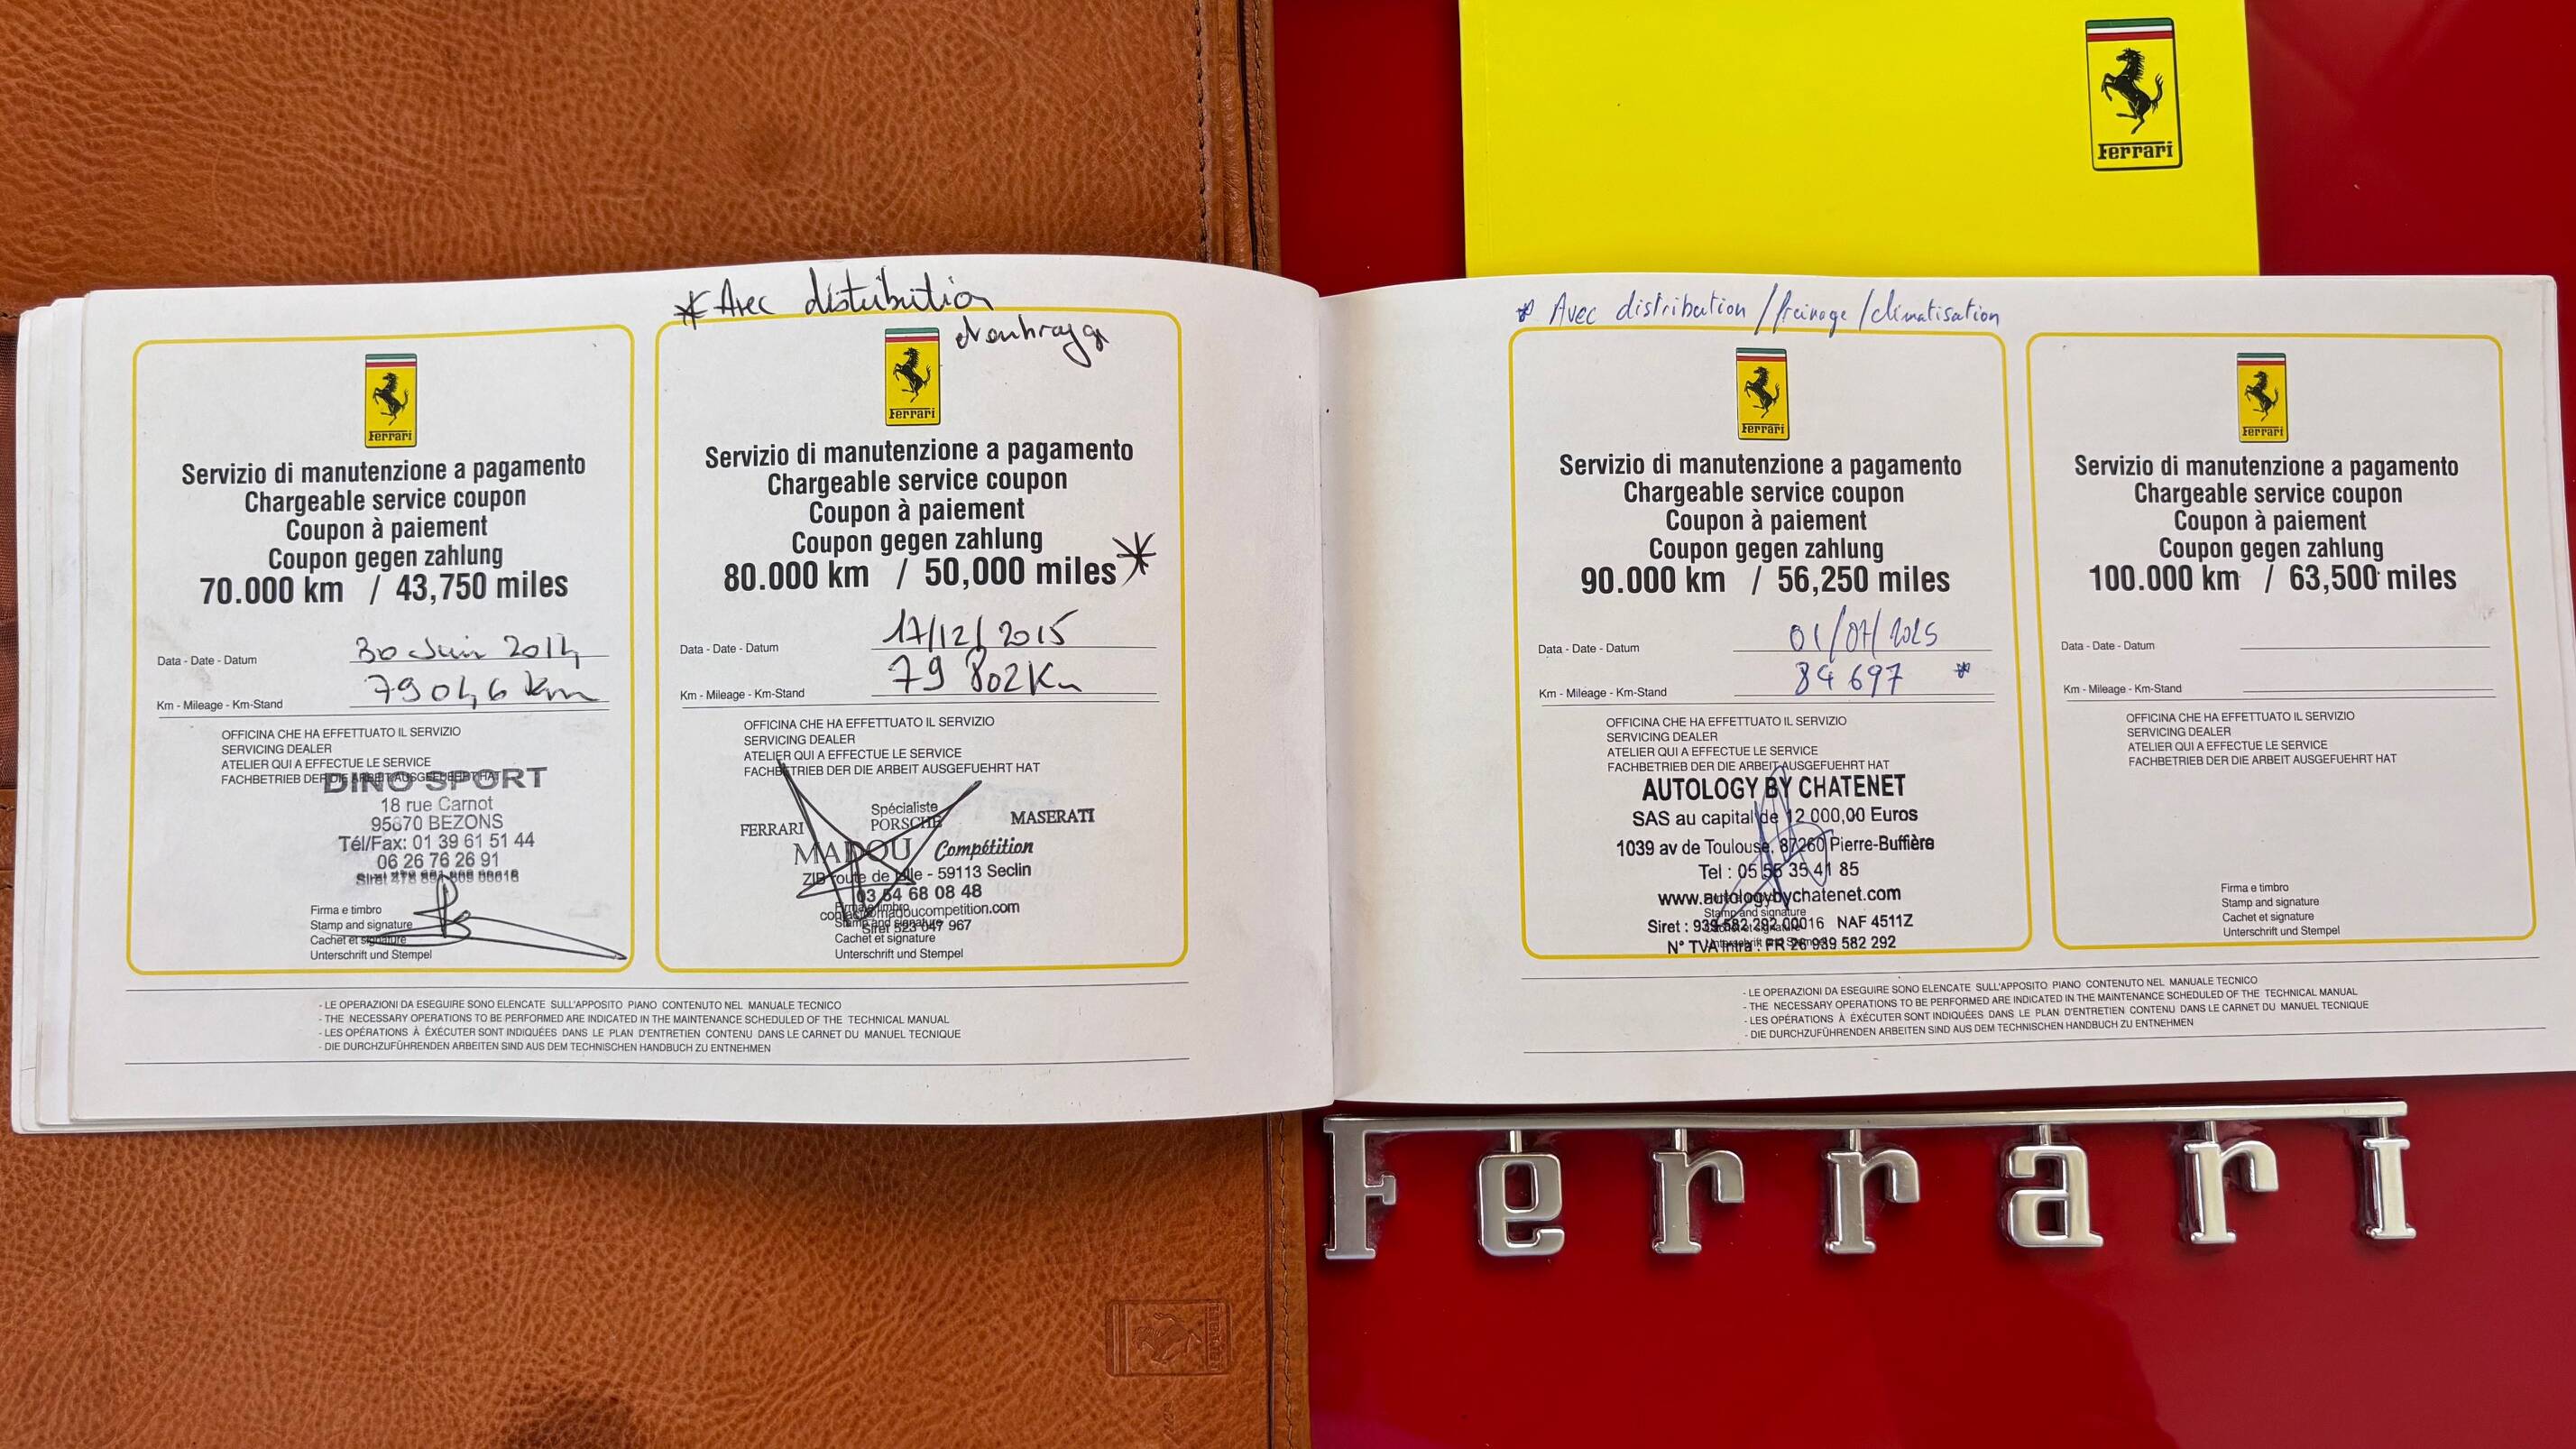 Ferrari
* Avec distribution
Ferrari
Servizio di manutenzione a pagamento
Chargeable service coupon
Coupon à paiement
Coupon gegen zahlung
70.000 km / 43,750 miles
Data - Date - Datum 30 Juin 2014
Km - Mileage - Km-Stand 79046 km
OFFICINA CHE HA EFFETTUATO IL SERVIZIO
SERVICING DEALER
ATELIER QUI A EFFECTUE LE SERVICE
FACHBETRIEB DER DIE ARBEIT AUSGEFUEHRT HAT
DINO SPORT
18 rue Carnot
95870 BEZONS
Tél/Fax: 01 39 61 51 44
06 26 76 26 91
Firma e timbro
Stamp and signature
Cachet et signature
Unterschrift und Stempel
Ferrari
Servizio di manutenzione a pagamento
Chargeable service coupon
Coupon à paiement
Coupon gegen zahlung
80.000 km / 50,000 miles *
Data - Date - Datum 17/12/2015
Km - Mileage - Km-Stand 79 802 Km
OFFICINA CHE HA EFFETTUATO IL SERVIZIO
SERVICING DEALER
ATELIER QUI A EFFECTUE LE SERVICE
FACHBETRIEB DER DIE ARBEIT AUSGEFUEHRT HAT
Spécialiste
FERRARI PORSCHE MASERATI
MADOU Compétition
route de Lille - 59113 Seclin
03 54 68 08 48
contact@madoucompetition.com
Siret 523 047 967
Stamp and signature
Cachet et signature
Unterschrift und Stempel
- LE OPERAZIONI DA ESEGUIRE SONO ELENCATE SULL'APPOSITO PIANO CONTENUTO NEL MANUALE TECNICO
- THE NECESSARY OPERATIONS TO BE PERFORMED ARE INDICATED IN THE MAINTENANCE SCHEDULED OF THE TECHNICAL MANUAL
- LES OPÉRATIONS À ÉXÉCUTER SONT INDIQUÉES DANS LE PLAN D'ENTRETIEN CONTENU DANS LE CARNET DU MANUEL TECHNIQUE
- DIE DURCHZUFÜHRENDEN ARBEITEN SIND AUS DEM TECHNISCHEN HANDBUCH ZU ENTNEHMEN
* Avec distribution / freinage / climatisation
Ferrari
Servizio di manutenzione a pagamento
Chargeable service coupon
Coupon à paiement
Coupon gegen zahlung
90.000 km / 56,250 miles
Data - Date - Datum 01/07/2025
Km - Mileage - Km-Stand 84 697 *
OFFICINA CHE HA EFFETTUATO IL SERVIZIO
SERVICING DEALER
ATELIER QUI A EFFECTUE LE SERVICE
FACHBETRIEB DER DIE ARBEIT AUSGEFUEHRT HAT
AUTOLOGY BY CHATENET
SAS au capital de 12 000,00 Euros
1039 av de Toulouse, 87260 Pierre-Buffière
Tel : 05 55 35 41 85
www.autologybychatenet.com
Stamp and signature
Siret : 939 582 292 00016 NAF 4511Z
N° TVA Intra : FR 26 939 582 292
Ferrari
Servizio di manutenzione a pagamento
Chargeable service coupon
Coupon à paiement
Coupon gegen zahlung
100.000 km / 63,500 miles
Data - Date - Datum
Km - Mileage - Km-Stand
OFFICINA CHE HA EFFETTUATO IL SERVIZIO
SERVICING DEALER
ATELIER QUI A EFFECTUE LE SERVICE
FACHBETRIEB DER DIE ARBEIT AUSGEFUEHRT HAT
Firma e timbro
Stamp and signature
Cachet et signature
Unterschrift und Stempel
- LE OPERAZIONI DA ESEGUIRE SONO ELENCATE SULL'APPOSITO PIANO CONTENUTO NEL MANUALE TECNICO
- THE NECESSARY OPERATIONS TO BE PERFORMED ARE INDICATED IN THE MAINTENANCE SCHEDULED OF THE TECHNICAL MANUAL
- LES OPÉRATIONS À ÉXÉCUTER SONT INDIQUÉES DANS LE PLAN D'ENTRETIEN CONTENU DANS LE CARNET DU MANUEL TECNIQUE
- DIE DURCHZUFÜHRENDEN ARBEITEN SIND AUS DEM TECHNISCHEN HANDBUCH ZU ENTNEHMEN
Ferrari
Ferrari